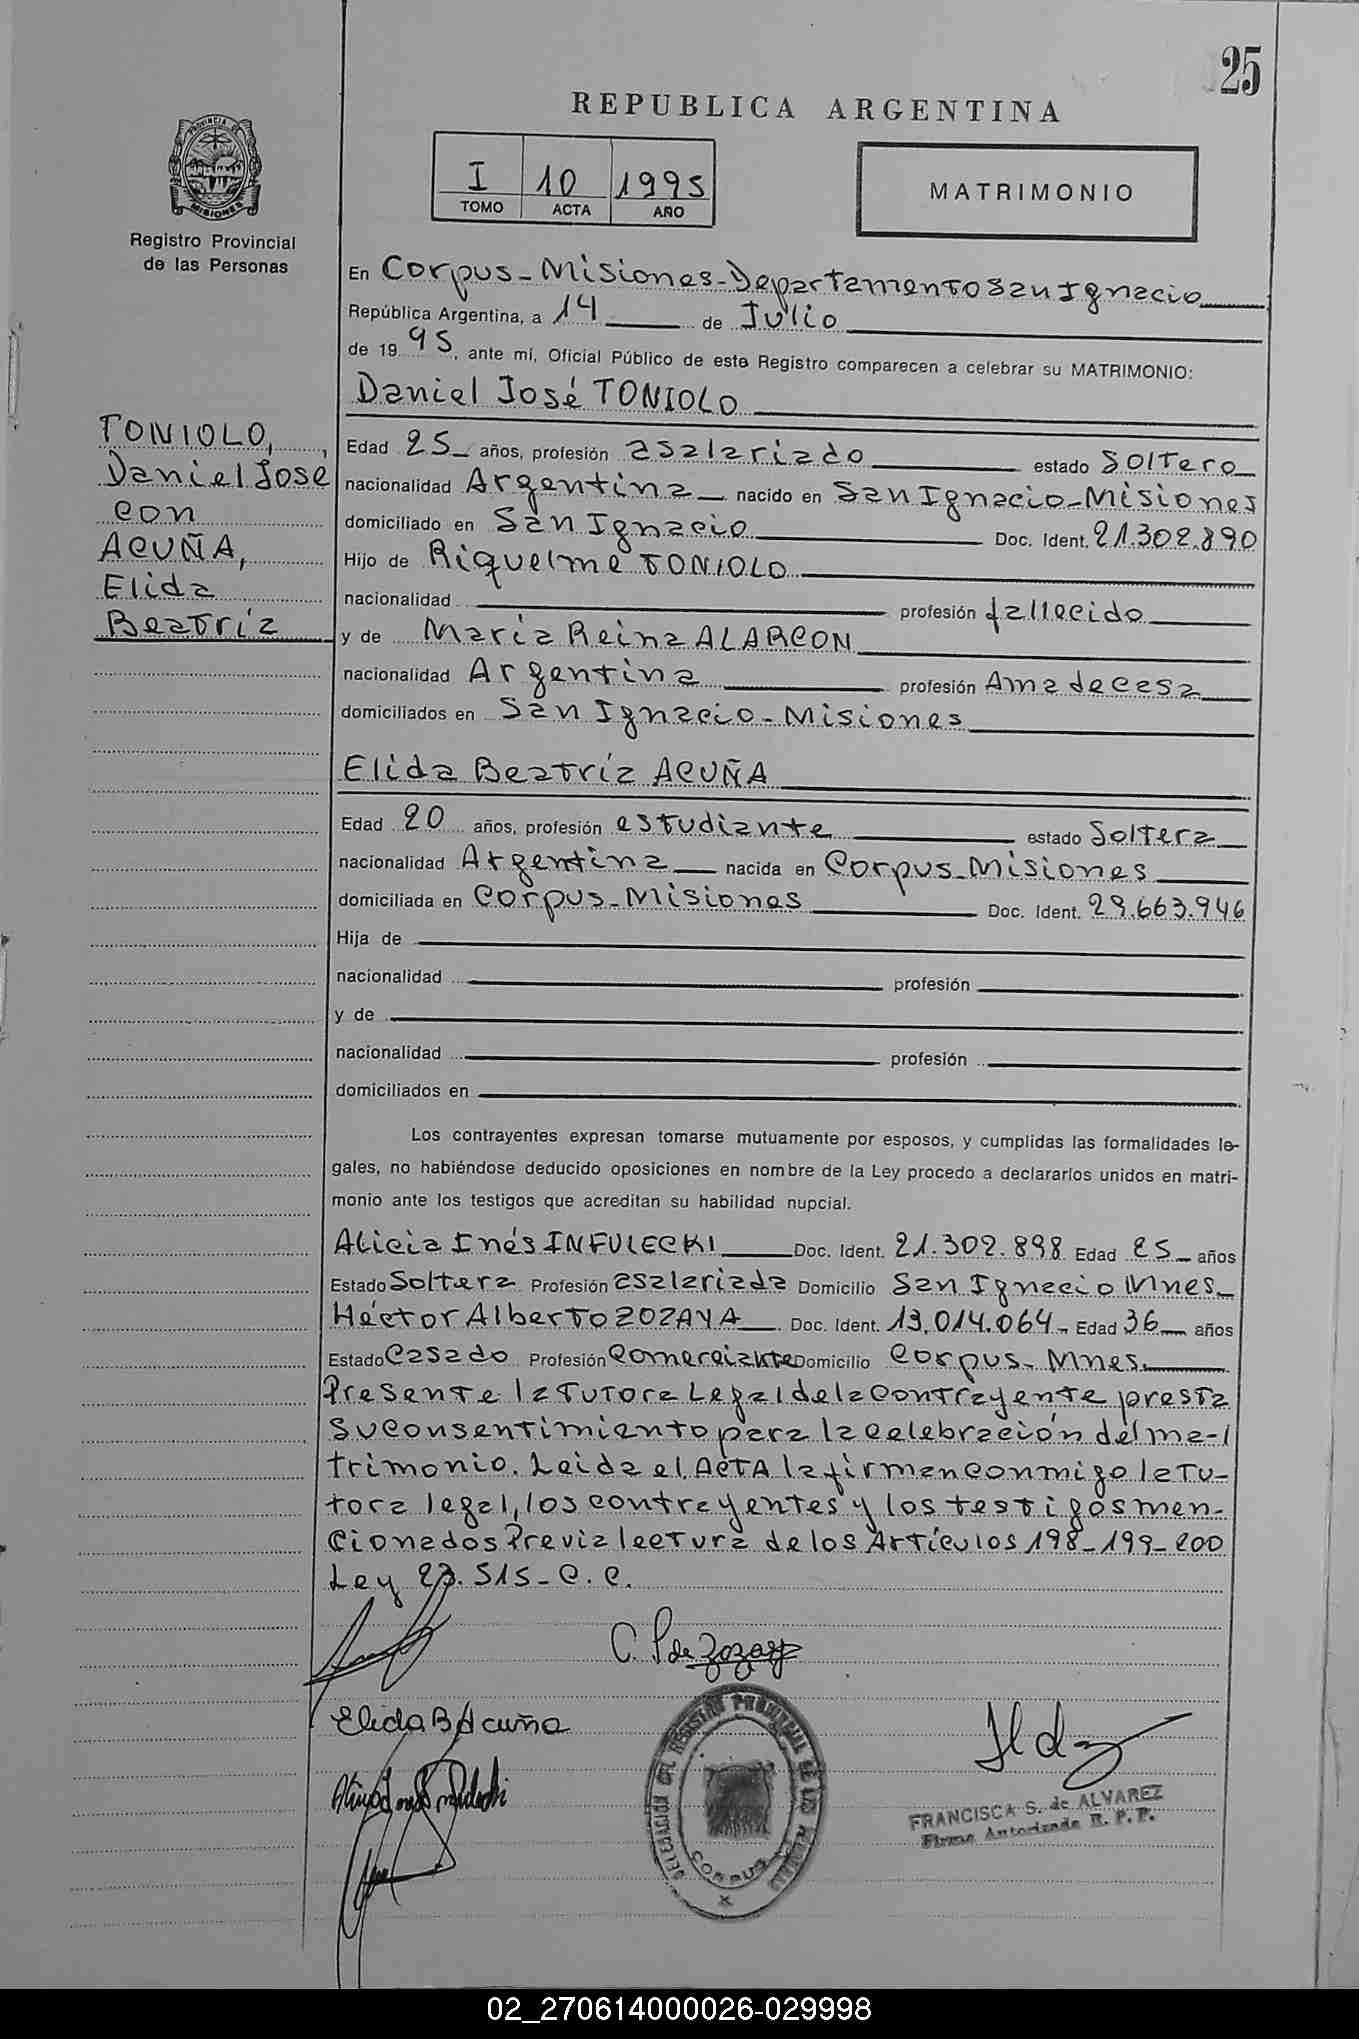 25
REPUBLICA ARGENTINA
I 10 1995
TOMO ACTA AÑO
MATRIMONIO
PROVINCIA DE
MISIONES
Registro Provincial
de las Personas
En Corpus-Misiones-Departamento San Ignacio
República Argentina, a 14 de Julio
de 1995, ante mí, Oficial Público de este Registro comparecen a celebrar su MATRIMONIO:
Daniel José TONIOLO
TONIOLO,
Daniel José
con
ACUÑA,
Elida
Beatríz
Edad 25 años, profesión asalariado estado Soltero
nacionalidad Argentina nacido en San Ignacio-Misiones
domiciliado en San Ignacio Doc. Ident. 21.302.890
Hijo de Riquelme TONIOLO
nacionalidad profesión fallecido
y de María Reina ALARCON
nacionalidad Argentina profesión Ama de casa
domiciliados en San Ignacio-Misiones
Elida Beatríz ACUÑA
Edad 20 años, profesión estudiante estado Soltera
nacionalidad Argentina nacida en Corpus-Misiones
domiciliada en Corpus-Misiones Doc. Ident. 29.663.946
Hija de
nacionalidad profesión
y de
nacionalidad profesión
domiciliados en
Los contrayentes expresan tomarse mutuamente por esposos, y cumplidas las formalidades le-
gales, no habiéndose deducido oposiciones en nombre de la Ley procedo a declararlos unidos en matri-
monio ante los testigos que acreditan su habilidad nupcial.
Alicia Inés INFULECKI Doc. Ident. 21.302.898 Edad 25 años
Estado Soltera Profesión asalariada Domicilio San Ignacio Mnes
Héctor Alberto ZOZAYA Doc. Ident. 13.014.064 Edad 36 años
Estado Casado Profesión Comerciante Domicilio Corpus-Mnes.
Presente la Tutora Legal de la Contrayente presta
su consentimiento para la celebración del ma-
trimonio. Leida el ACTA la firman conmigo la Tu-
tora legal, los contrayentes y los testigos men-
cionados Previa lectura de los Artículos 198-199-200
Ley 23.515-C.C.
C. P de Zozaya
Elida B Acuña
DELEGACIÓN DEL REGISTRO PROVINCIAL DE LAS PERSONAS
CORPUS
FRANCISCA S. de ALVAREZ
Firma Autorizada R. P. P.
02_270614000026-029998